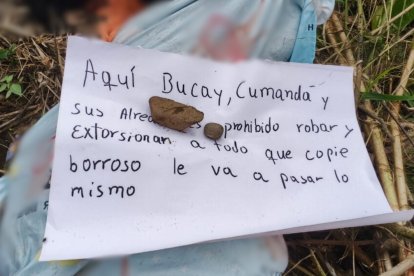 Aquí Bucay, Cumandá y
sus prohibido robar y
Extorsionan a todo que copie
borroso le va a pasar lo
mismo